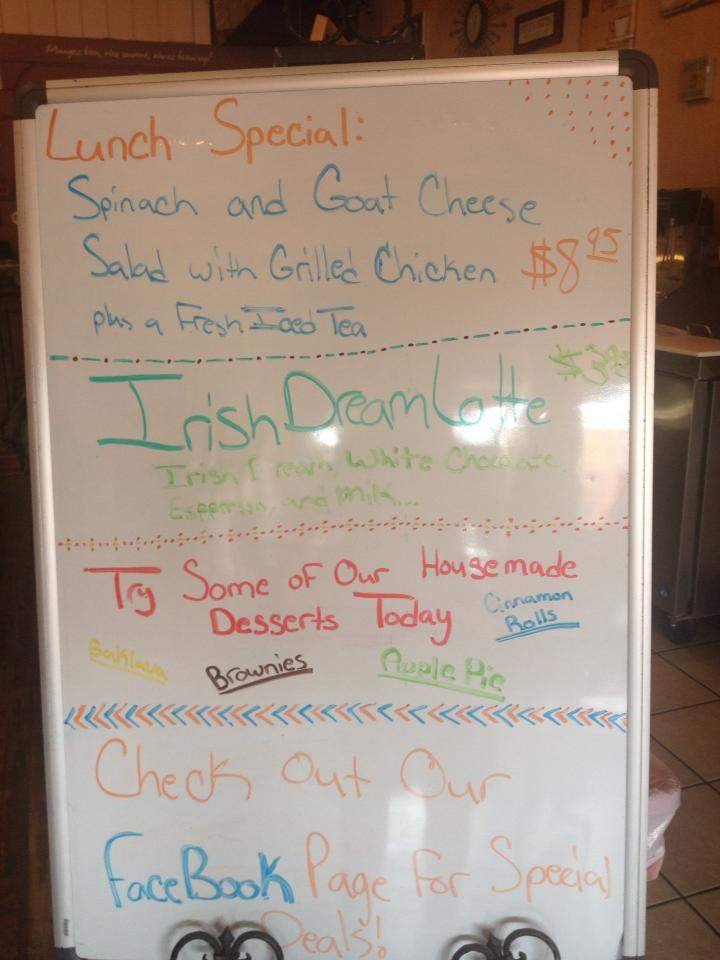 Lunch Special:
Spinach and Goat Cheese
Salad with Grilled Chicken $8.95
plus a Fresh Iced Tea
Irish Dream Latte
Irish Cream White Chocolate
Espresso and Milk...
Try Some of Our Housemade
Desserts Today
Cinnamon
Rolls
Baklava
Brownies
Apple Pie
Check Out Our
FaceBook Page For Special
Deals!